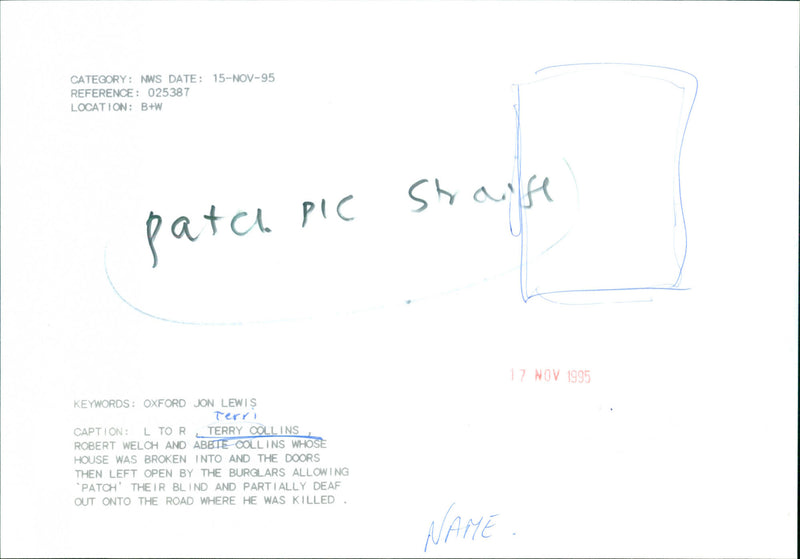 CATEGORY: NWS DATE: 15-NOV-95
REFERENCE: 025387
LOCATION: B+W
patch PIC
17 NOV 1995
KEYWORDS: OXFORD JON LEWIS
Terri
CAPTION: L TO R , TERRY COLLINS ,
ROBERT WELCH AND ABBIE COLLINS WHOSE
HOUSE WAS BROKEN INTO AND THE DOORS
THEN LEFT OPEN BY THE BURGLARS ALLOWING
'PATCH' THEIR BLIND AND PARTIALLY DEAF
OUT ONTO THE ROAD WHERE HE WAS KILLED .
NAME.